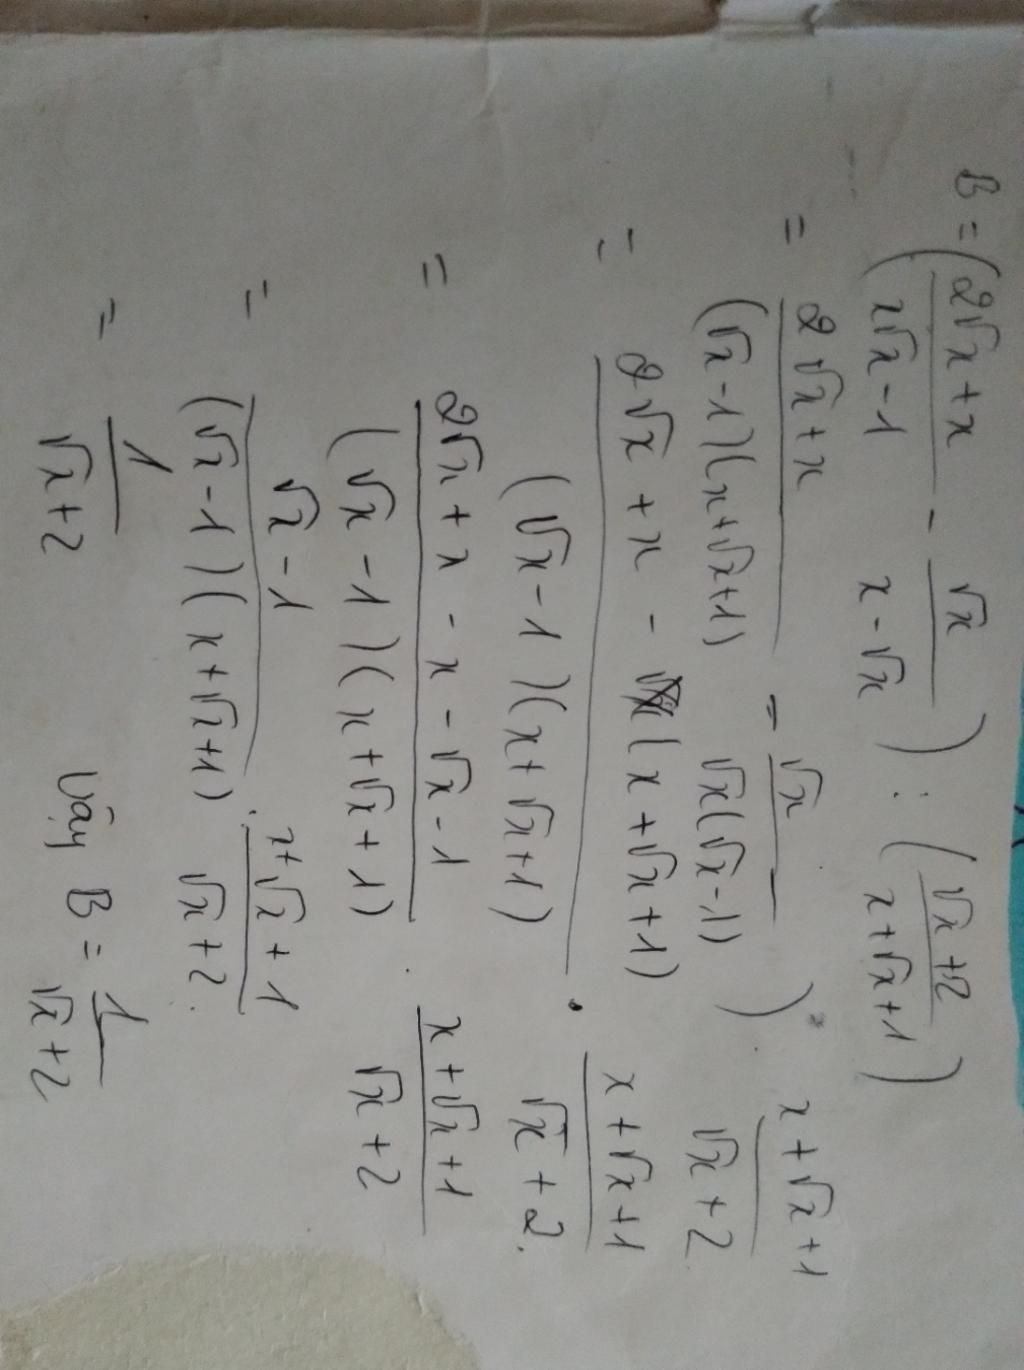 B = ( (2√x + x)/(x√x - 1) - √x/(x - √x) ) : ( (√x + 2)/(x + √x + 1) )
= (2√x + x)/((√x - 1)(x + √x + 1)) = √x/(√x(√x - 1)) ) . (x + √x + 1)/(√x + 2)
= (2√x + x - (x + √x + 1))/((√x - 1)(x + √x + 1)) . (x + √x + 1)/(√x + 2).
= (2√x + x - x - √x - 1)/((√x - 1)(x + √x + 1)) . (x + √x + 1)/(√x + 2)
= (√x - 1)/((√x - 1)(x + √x + 1)) . (x + √x + 1)/(√x + 2).
= 1/(√x + 2)
Vậy B = 1/(√x + 2)